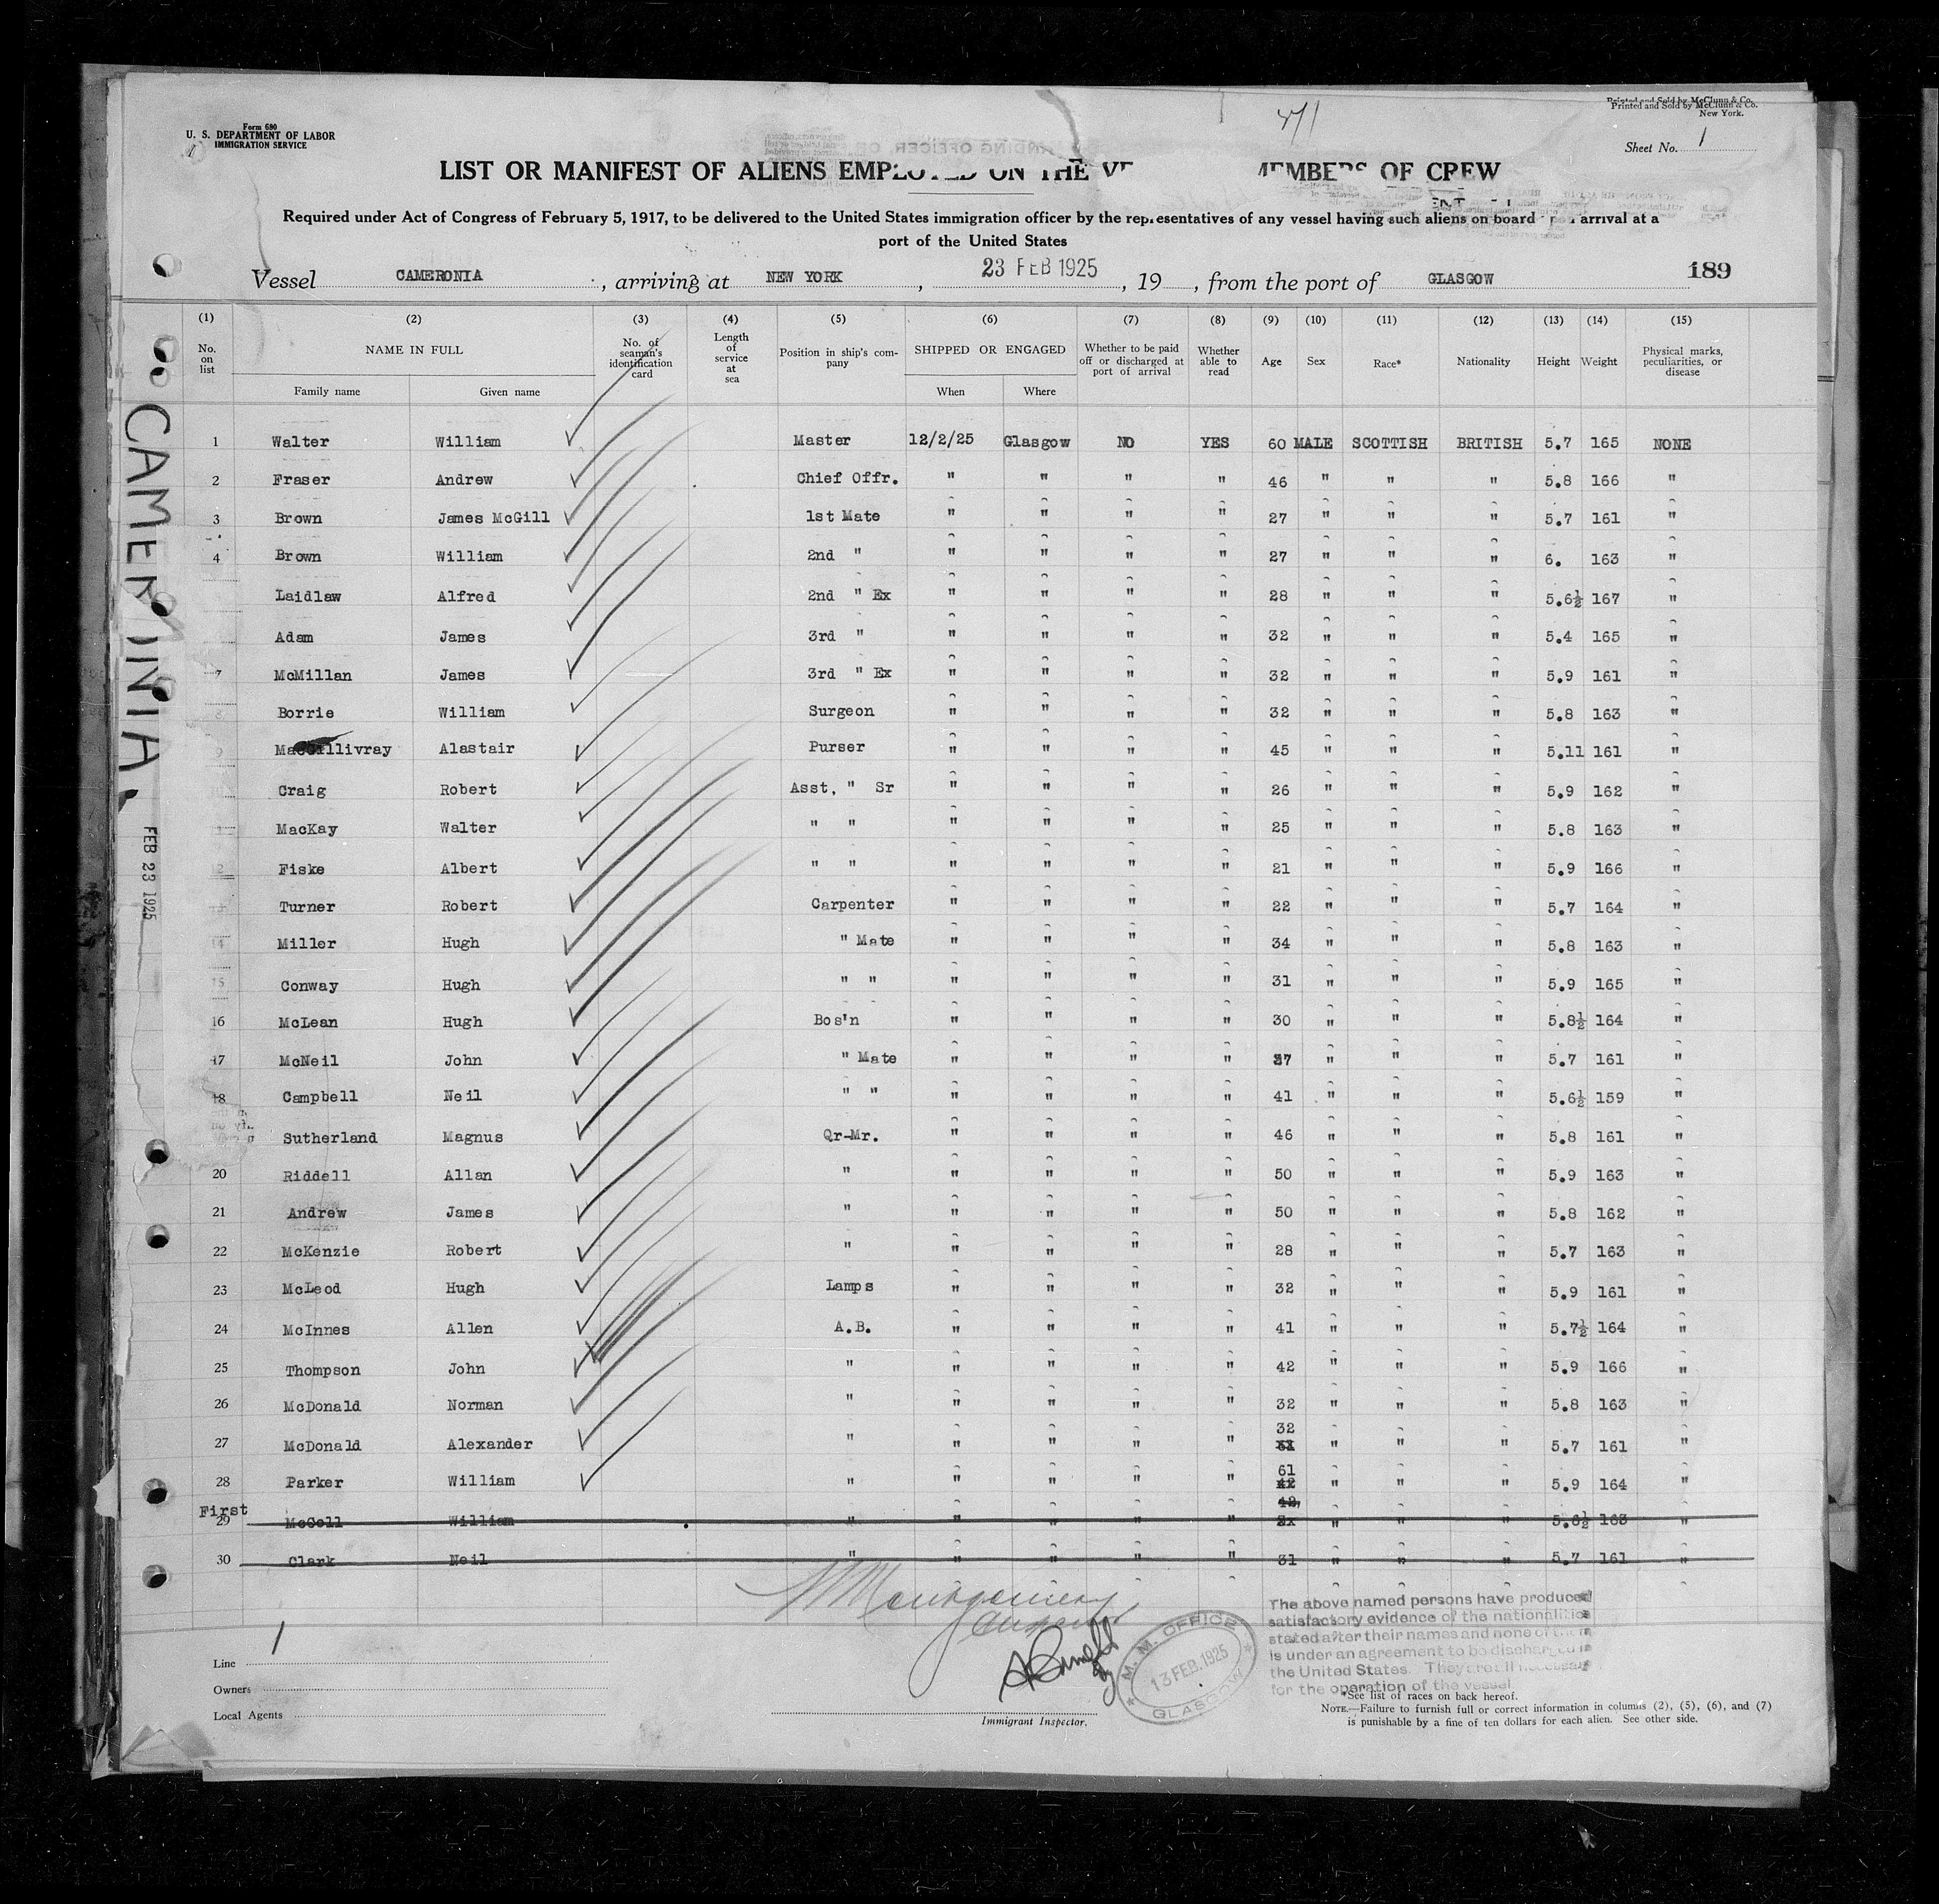 Printed and Sold by McClunn & Co.
New York.
Form 680
U. S. DEPARTMENT OF LABOR
IMMIGRATION SERVICE
Sheet No. 1
LIST OR MANIFEST OF ALIENS EMPLOYED ON THE VE MEMBERS OF CREW
Required under Act of Congress of February 5, 1917, to be delivered to the United States immigration officer by the representatives of any vessel having such aliens on board arrival at a
port of the United States
Vessel CAMERONIA, arriving at NEW YORK, 23 FEB 1925, 19 , from the port of GLASGOW 189
(1) (2) (3) (4) (5) (6) (7) (8) (9) (10) (11) (12) (13) (14) (15)
No. on list NAME IN FULL No. of seaman's identification card Length of service at sea Position in ship's company SHIPPED OR ENGAGED Whether to be paid off or discharged at port of arrival Whether able to read Age Sex Race* Nationality Height Weight Physical marks, peculiarities, or disease
Family name Given name When Where
1 Walter William Master 12/2/25 Glasgow NO YES 60 MALE SCOTTISH BRITISH 5.7 165 NONE
2 Fraser Andrew Chief Offr. " " " " 46 " " " 5.8 166 "
3 Brown James McGill 1st Mate " " " " 27 " " " 5.7 161 "
4 Brown William 2nd " " " " " 27 " " " 6. 163 "
Laidlaw Alfred 2nd " Ex " " " " 28 " " " 5.6½ 167 "
Adam James 3rd " " " " " 32 " " " 5.4 165 "
7 McMillan James 3rd " Ex " " " " 32 " " " 5.9 161 "
8 Borrie William Surgeon " " " " 32 " " " 5.8 163 "
9 MacGillivray Alastair Purser " " " " 45 " " " 5.11 161 "
10 Craig Robert Asst. " Sr " " " " 26 " " " 5.9 162 "
MacKay Walter " " " " " " 25 " " " 5.8 163 "
12 Fiske Albert " " " " " " 21 " " " 5.9 166 "
Turner Robert Carpenter " " " " 22 " " " 5.7 164 "
14 Miller Hugh " Mate " " " " 34 " " " 5.8 163 "
15 Conway Hugh " " " " " " 31 " " " 5.9 165 "
16 McLean Hugh Bos'n " " " " 30 " " " 5.8½ 164 "
17 McNeil John " Mate " " " " 37 " " " 5.7 161 "
18 Campbell Neil " " " " " " 41 " " " 5.6½ 159 "
Sutherland Magnus Qr-Mr. " " " " 46 " " " 5.8 161 "
20 Riddell Allan " " " " " 50 " " " 5.9 163 "
21 Andrew James " " " " " 50 " " " 5.8 162 "
22 McKenzie Robert " " " " " 28 " " " 5.7 163 "
23 McLeod Hugh Lamps " " " " 32 " " " 5.9 161 "
24 McInnes Allen A.B. " " " " 41 " " " 5.7½ 164 "
25 Thompson John " " " " " 42 " " " 5.9 166 "
26 McDonald Norman " " " " " 32 " " " 5.8 163 "
27 McDonald Alexander " " " " " 32 " " " 5.7 161 "
28 Parker William " " " " " 61 42 " " " 5.9 164 "
First
29 McColl William " " " " " 42 " " " 5.6½ 163 "
30 Clark Neil " " " " " 31 " " " 5.7 161 "
CAMERONIA
FEB 23 1925
Montgomery
M. M. OFFICE
13 FEB. 1925
GLASGOW
The above named persons have produced
satisfactory evidence of the nationalities
stated after their names and none of them
is under an agreement to be discharged in
the United States. They are all necessary
for the operation of the vessel
1
Line
Owners
Local Agents
Immigrant Inspector.
*See list of races on back hereof.
NOTE.—Failure to furnish full or correct information in columns (2), (5), (6), and (7)
is punishable by a fine of ten dollars for each alien. See other side.